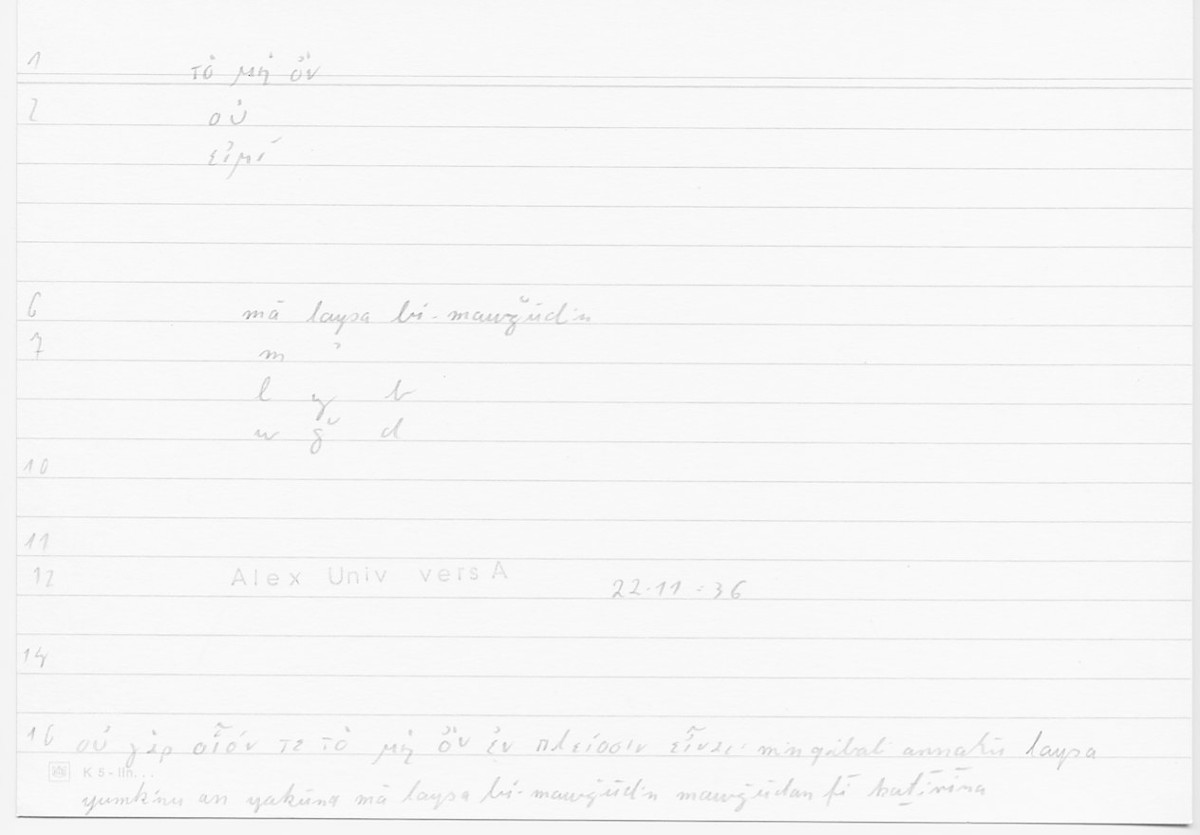 1 τὸ μὴ ὄν
2 οὐ
εἰμί
6 mā laysa bi-mawǧūdin
7 m ʾ
l y b
w ǧ d
10
11
12 Alex Univ vers A 22.11 - 36
14
16 οὐ γὰρ οἷόν τε τὸ μὴ ὂν ἐν πλείοσιν εἶναι: min qibali annahū laysa
K 5 - lin...
yumkinu an yakūna mā laysa bi-mawǧūdin mawǧūdan fī kaṯīrīna